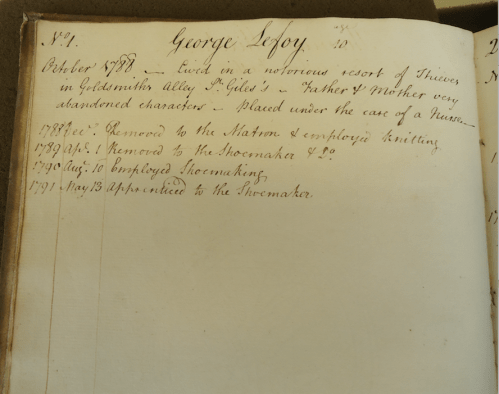 No. 1. George Lefoy. age 10
October 1788 — Lived in a notorious resort of Thieves
in Goldsmiths Alley St. Giles's — Father & Mother very
abandoned characters — placed under the care of a Nurse—
1788 Decr. Removed to the Matron & employed knitting
1789 Ap. 1 Removed to the Shoemaker & Do.
1790 Aug. 10 Employed Shoemaking
1791 May 13 Apprenticed to the Shoemaker.
2
N
17